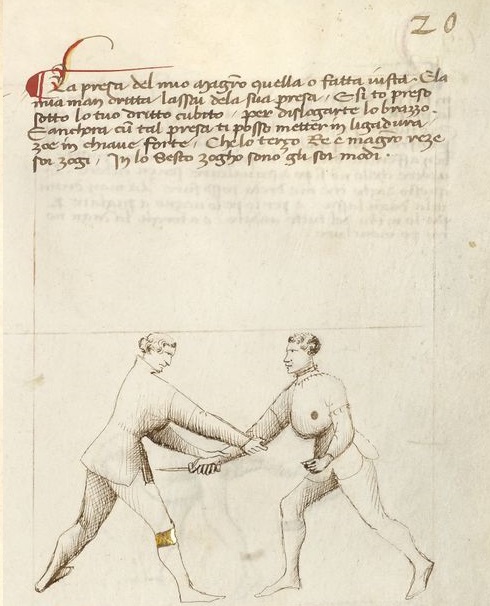 20
La presa del mio Magro quella o fatta iusta. E la
mia man dritta lassai de la sua presa, E si to preso
sotto lo tuo dritto cubito, per dislogarte lo brazzo.
E anchora cum tal presa ti posso metter in ligadura
zoe in chiave forte, Che lo terzo Re e magro reze
soi zogi, In lo Sesto zogho sono gli soi modi.